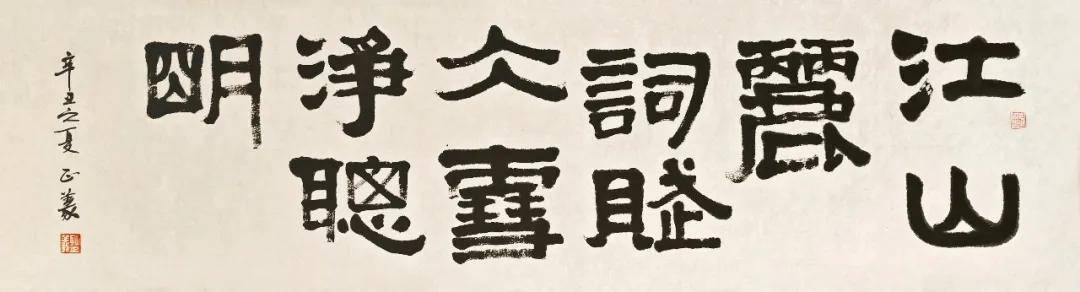 江山
麗
詞賦
仌雪
淨聰
朙
辛丑之夏 正義